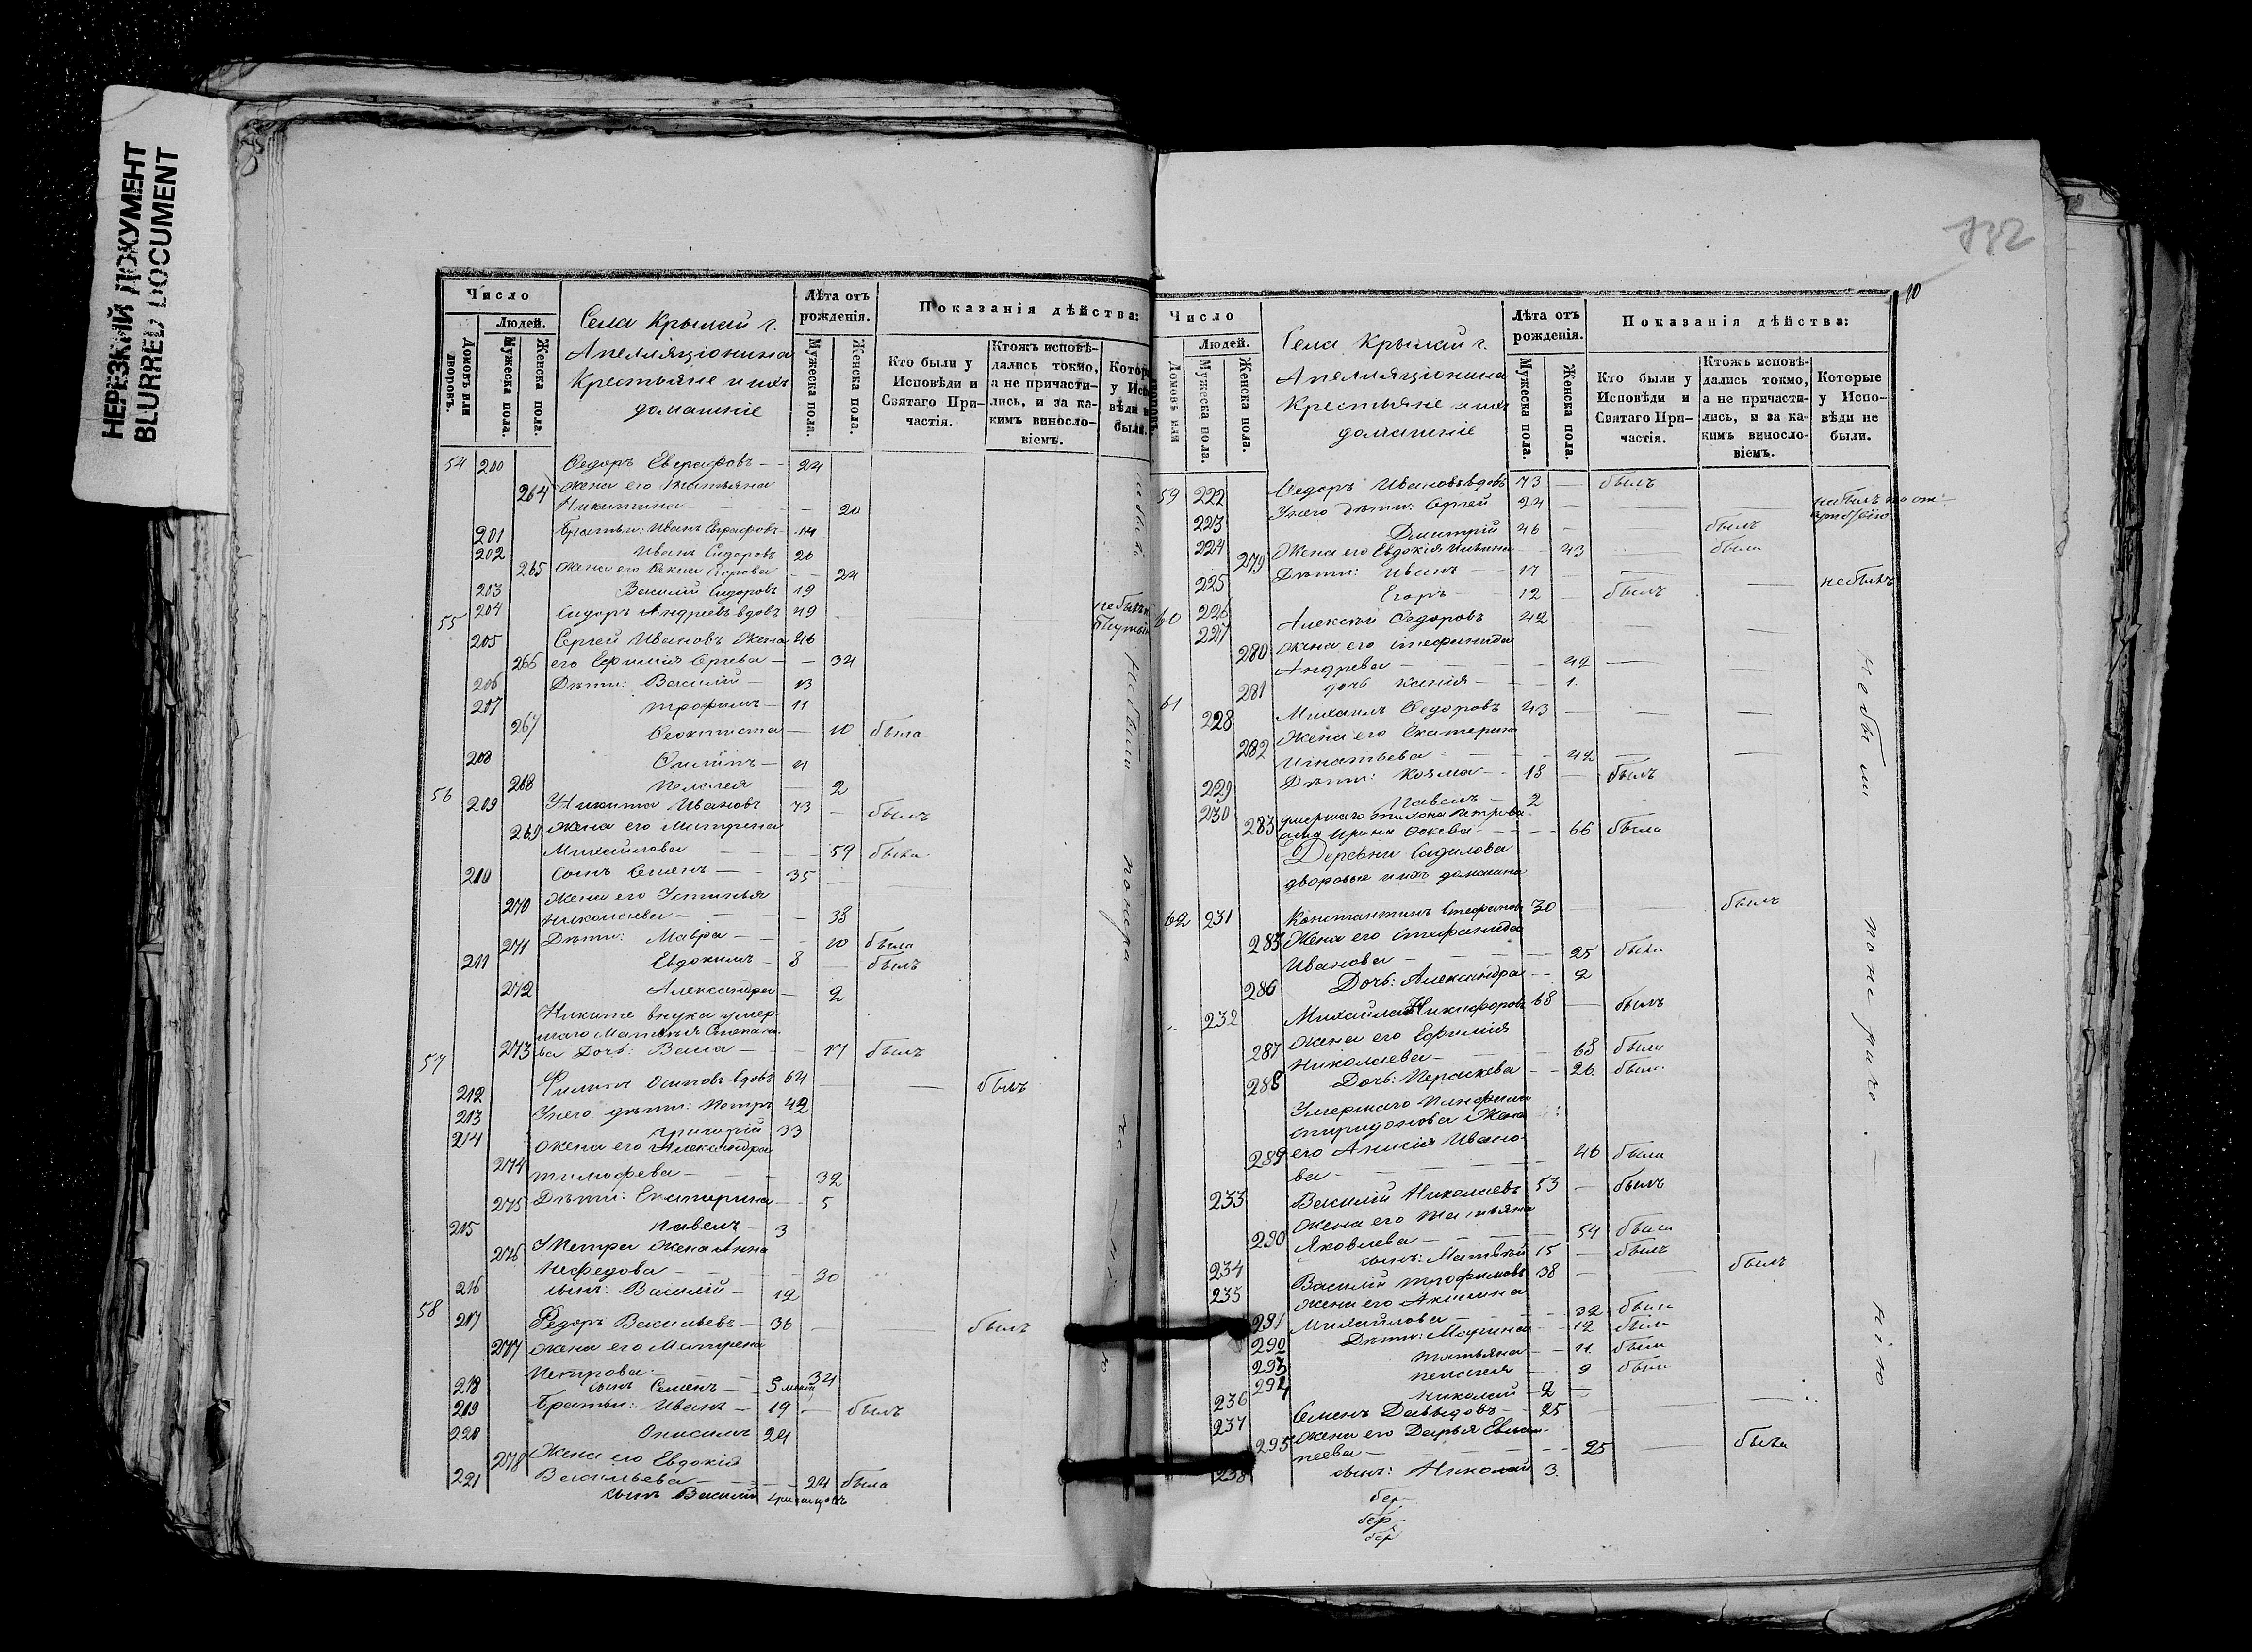 НЕРЕЗКИЙ ДОКУМЕНТ
BLURRED DOCUMENT
732
10
Число
Людей.
Домовъ или дворовъ.
Мужеска пола.
Женска пола.
Села Крылай г.
Апелляціонина
Крестьяне и ихъ
домашніе
Лѣта отъ рожденія.
Мужеска пола.
Женска пола.
Показанія дѣйства:
Кто были у Исповѣди и Святаго Причастія.
Ктожъ исповѣдались токмо, а не причастились, и за какимъ винословіемъ.
54 200 Ѳедоръ Евграфовъ 24
264 жена его Татьяна
Никитина 20
201 Братья: Иванъ Евграфовъ 14
202 Иванъ Сидоровъ 20
265 жена его Егорова 24
203 Василій Сидоровъ 19
55 204 Сидоръ Андреевъ вдовъ 49
205 Сергей Ивановъ Жена 46
266 его Ефимія 34
206 Дѣти: Василій 13
207 Трофимъ 11
267 Ѳеоктиста 10 была
208 4
268 Пелагея 2
56 209 Никита Ивановъ 73 былъ
269 жена его Матрена
Михайлова 59 была
210 Сынъ Семенъ 35
270 Жена его Устинья
Николаева 38
271 Дѣти: Мавра 10 была
211 Евдокимъ 8 былъ
272 Александра 2
Никите внука умер-
шаго Матвѣя Степано-
273 ва Дочь: 17 былъ
57
212 Филипъ Осиповъ вдовъ 64 былъ
213 У него дѣти: Петръ 42
214 Григорій 33
274 жена его Александра
Тимофева 32
275 Дѣти: Екатерина 5
215 Павелъ 3
276 У Петра жена Анна
Нефедова 30
216 сынъ: Василій 12
58 217 Федоръ Васильевъ 36 былъ
277 жена его Матрена
Петрова 34
218 сынъ Семенъ 5
219 Братья: Иванъ 19 былъ
220 Онисимъ 24
278 Жена его Евдокія
221 Васильева 24 была
сынъ Василій
Число
Людей.
Домовъ или дворовъ.
Мужеска пола.
Женска пола.
Села Крылай г.
Апелляціонина
Крестьяне и ихъ
домашніе
Лѣта отъ рожденія.
Мужеска пола.
Женска пола.
Показанія дѣйства:
Кто были у Исповѣди и Святаго Причастія.
Ктожъ исповѣдались токмо, а не причастились, и за какимъ винословіемъ.
Которые у Исповѣди не были.
59 222 Ѳедоръ Ивановъ вдовъ 73 былъ
223 У него дѣти: Сергей 24 небылъ по от-
224 Дмитрій 46 былъ
279 Жена его Евдокія 43 была
225 Дѣти: Иванъ 17 небылъ
226 Егоръ 12 былъ
60 227 Алексѣй Ѳедоровъ 42
280 жена его Стефанида
Андрева 42
281 дочь Ксенія 1.
61 228 Михаилъ Ѳедоровъ 43
282 Жена его Екатерина
Игнатьева 42
229 Дѣти: Козма 18 былъ
230 Павелъ 2
283 умершаго Тихона Петрова
Ирина 66 была
Деревни Садилова
дворовые и ихъ домашние
62 231 Константинъ Стефановъ 30 былъ
285 Жена его Стефанида
Иванова 25 была
286 Дочь: Александра 2
232 Михайла Никифоровъ 68 былъ
287 Жена его Ефимія
Николаева 63 была
288 Дочь: Параскева 26 была
Умершаго
Спиридонова Жена
289 его Анисія Ивано-
ва 46 была
233 Василій Николаевъ 53 былъ
290 Жена его Татьяна
Яковлева 54 была
234 сынъ: Матвѣй 15 былъ
235 Василій Трофимовъ 38 былъ
Жена его Акилина
291 Михайлова 32 была
292 Дѣти: Марина 12 была
293 Татьяна 11 была
294 Пелагея 9 была
236 Николай 2
237 Семенъ Давыдовъ 25
295 Жена его Дарья Евлам-
пеева 25 была
238 сынъ: Николай 3